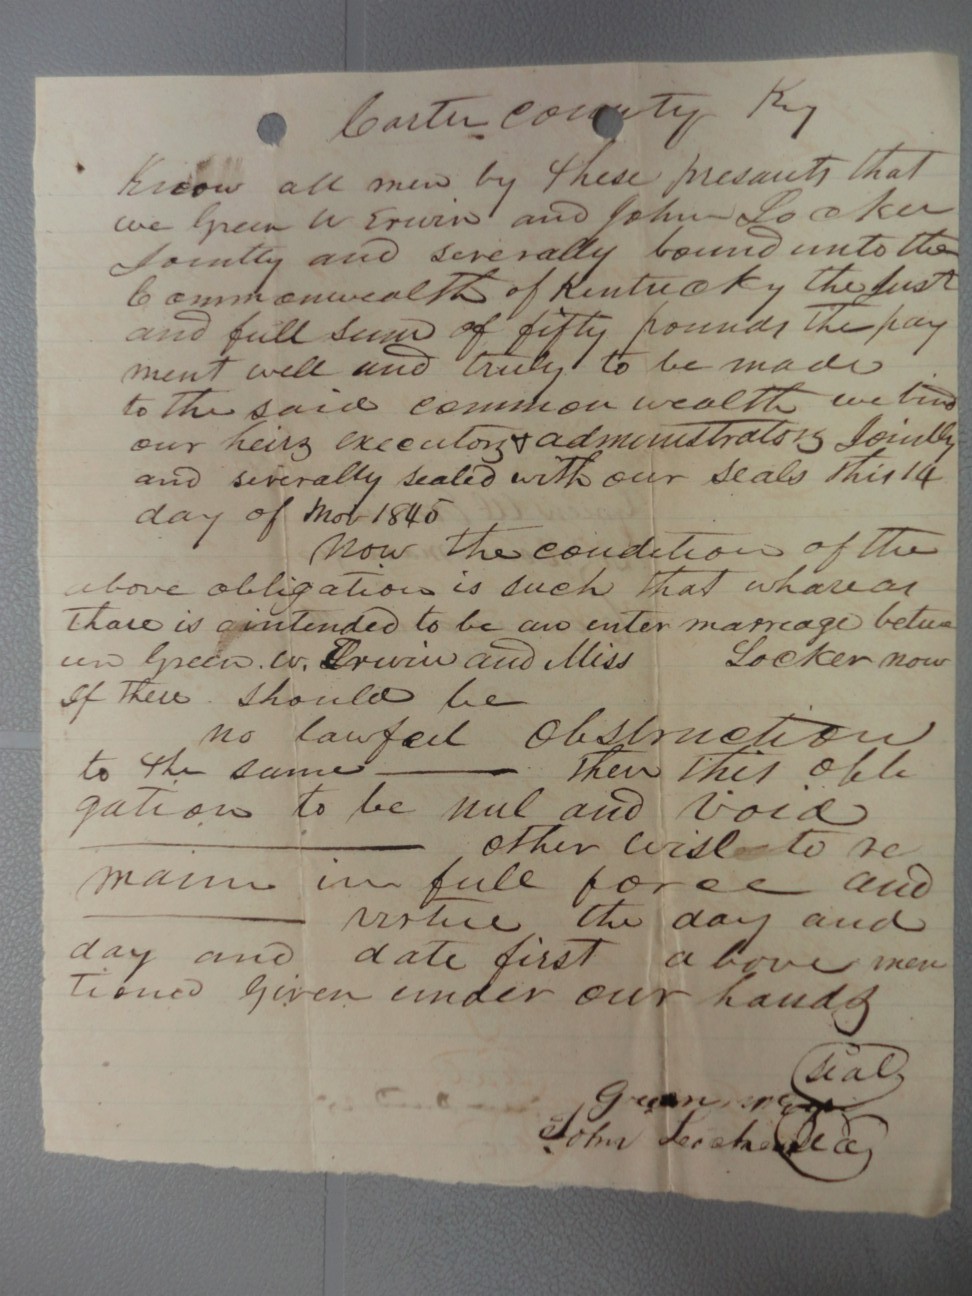 Carter county Ky
Know all men by these presants that
we Green W Erwin and John Locker
Jointly and severally bound unto the
Commonwealth of Kentucky the Just
and full sum of fifty pounds the pay
ment well and truly to be made
to the said common wealth we bind
our heirs executors & administrators Jointly
and severally sealed with our seals this 14
day of Nov 1845
Now the condition of the
above obligation is such that whareas
thare is aintended to be an enter marreage betwe
en Green. W. Erwin and Miss Locker now
If there should be
no lawful obstruction
to the same then this obli
gation to be nul and void
other wise to re
main in full force and
virtue the day and
day and date first above men
tioned Given under our hands
seal
Green
John Locker seal